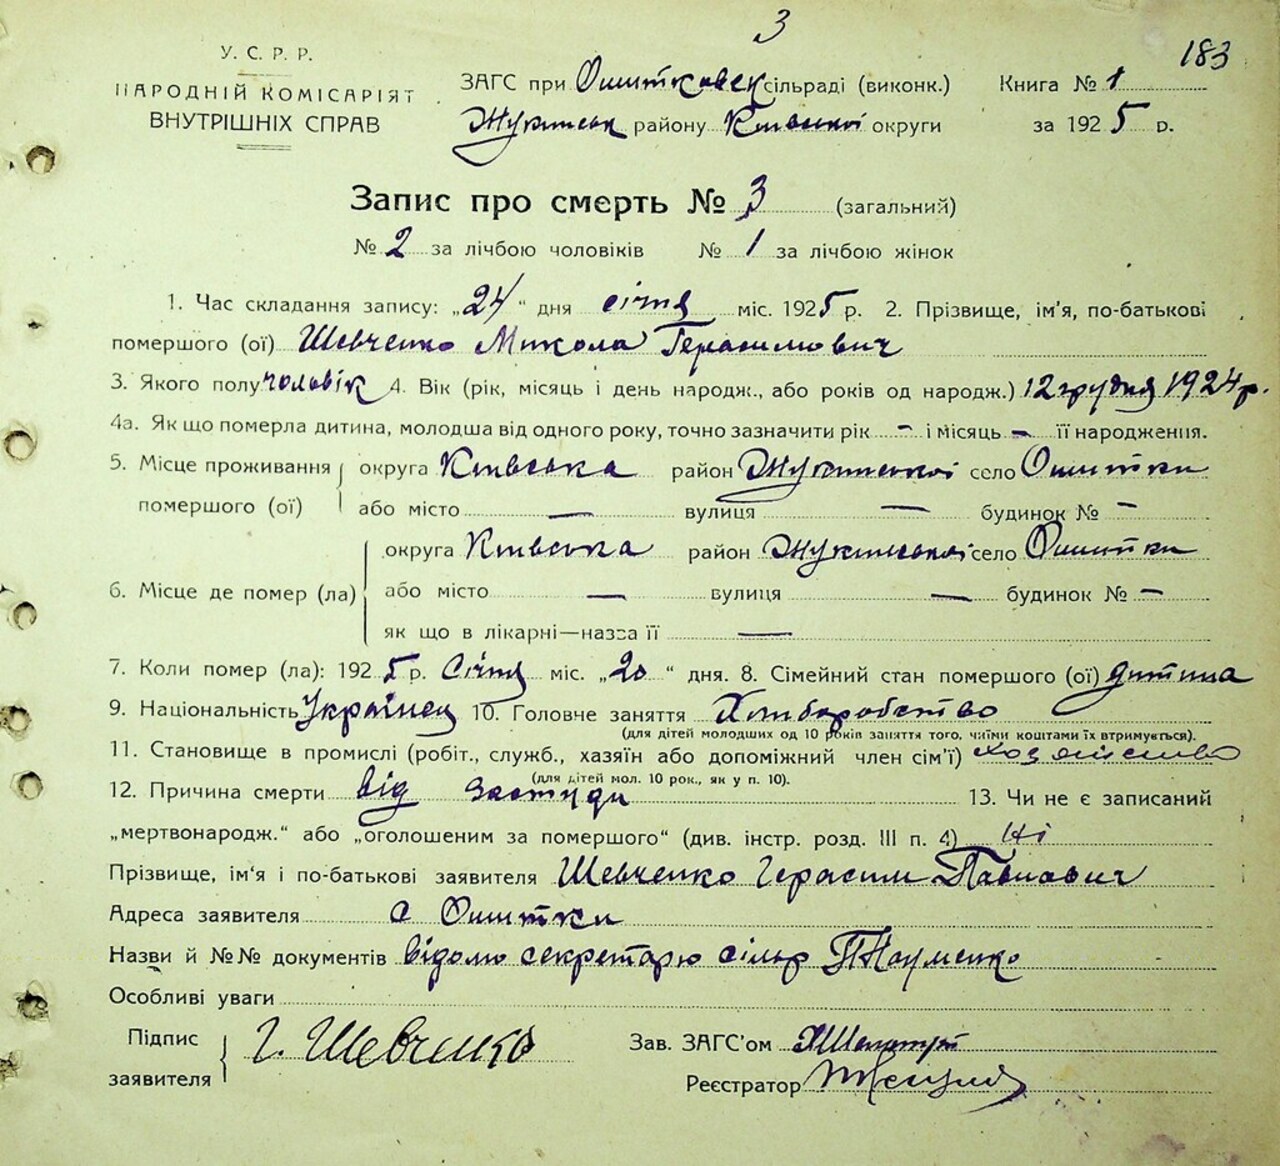 3
183
У. С. Р. Р.
НАРОДНІЙ КОМІСАРІЯТ
ВНУТРІШНІХ СПРАВ
ЗАГС при Ошитковск сільраді (виконк.)
Жукинськ району Київської округи
Книга № 1
за 1925 р.
Запис про смерть № 3 (загальний)
№ 2 за лічбою чоловіків № 1 за лічбою жінок
1. Час складання запису: „24“ дня січня міс. 1925 р. 2. Прізвище, ім'я, по-батькові
помершого (ої) Шевченко Микола Герасимович
3. Якого полу чоловік 4. Вік (рік, місяць і день народж., або років од народж.) 12 грудня 1924 р.
4а. Як що померла дитина, молодша від одного року, точно зазначити рік — і місяць — її народження.
5. Місце проживання помершого (ої) округа Київська район Жукинської село Ошитки
або місто — вулиця — будинок № —
6. Місце де помер (ла) округа Київська район Жукинської село Ошитки
або місто — вулиця — будинок № —
як що в лікарні—назва її —
7. Коли помер (ла): 1925 р. Січня міс. „20“ дня. 8. Сімейний стан помершого (ої) дитина
9. Національність Українец 10. Головне заняття Хліборобство
(для дітей молодших од 10 років заняття того, чиїми коштами їх втримується).
11. Становище в промислі (робіт., служб., хазяїн або допоміжний член сім'ї)
(для дітей мол. 10 рок., як у п. 10).
12. Причина смерти від застуди 13. Чи не є записаний
„мертвонародж.“ або „оголошеним за помершого“ (див. інстр. розд. III п. 4) Ні
Прізвище, ім'я і по-батькові заявителя Шевченко Герасим Павлович
Адреса заявителя с Ошитки
Назви й №№ документів відомо секретарю сільр Науменко
Особливі уваги
Підпис заявителя Г. Шевченко
Зав. ЗАГС'ом
Реєстратор